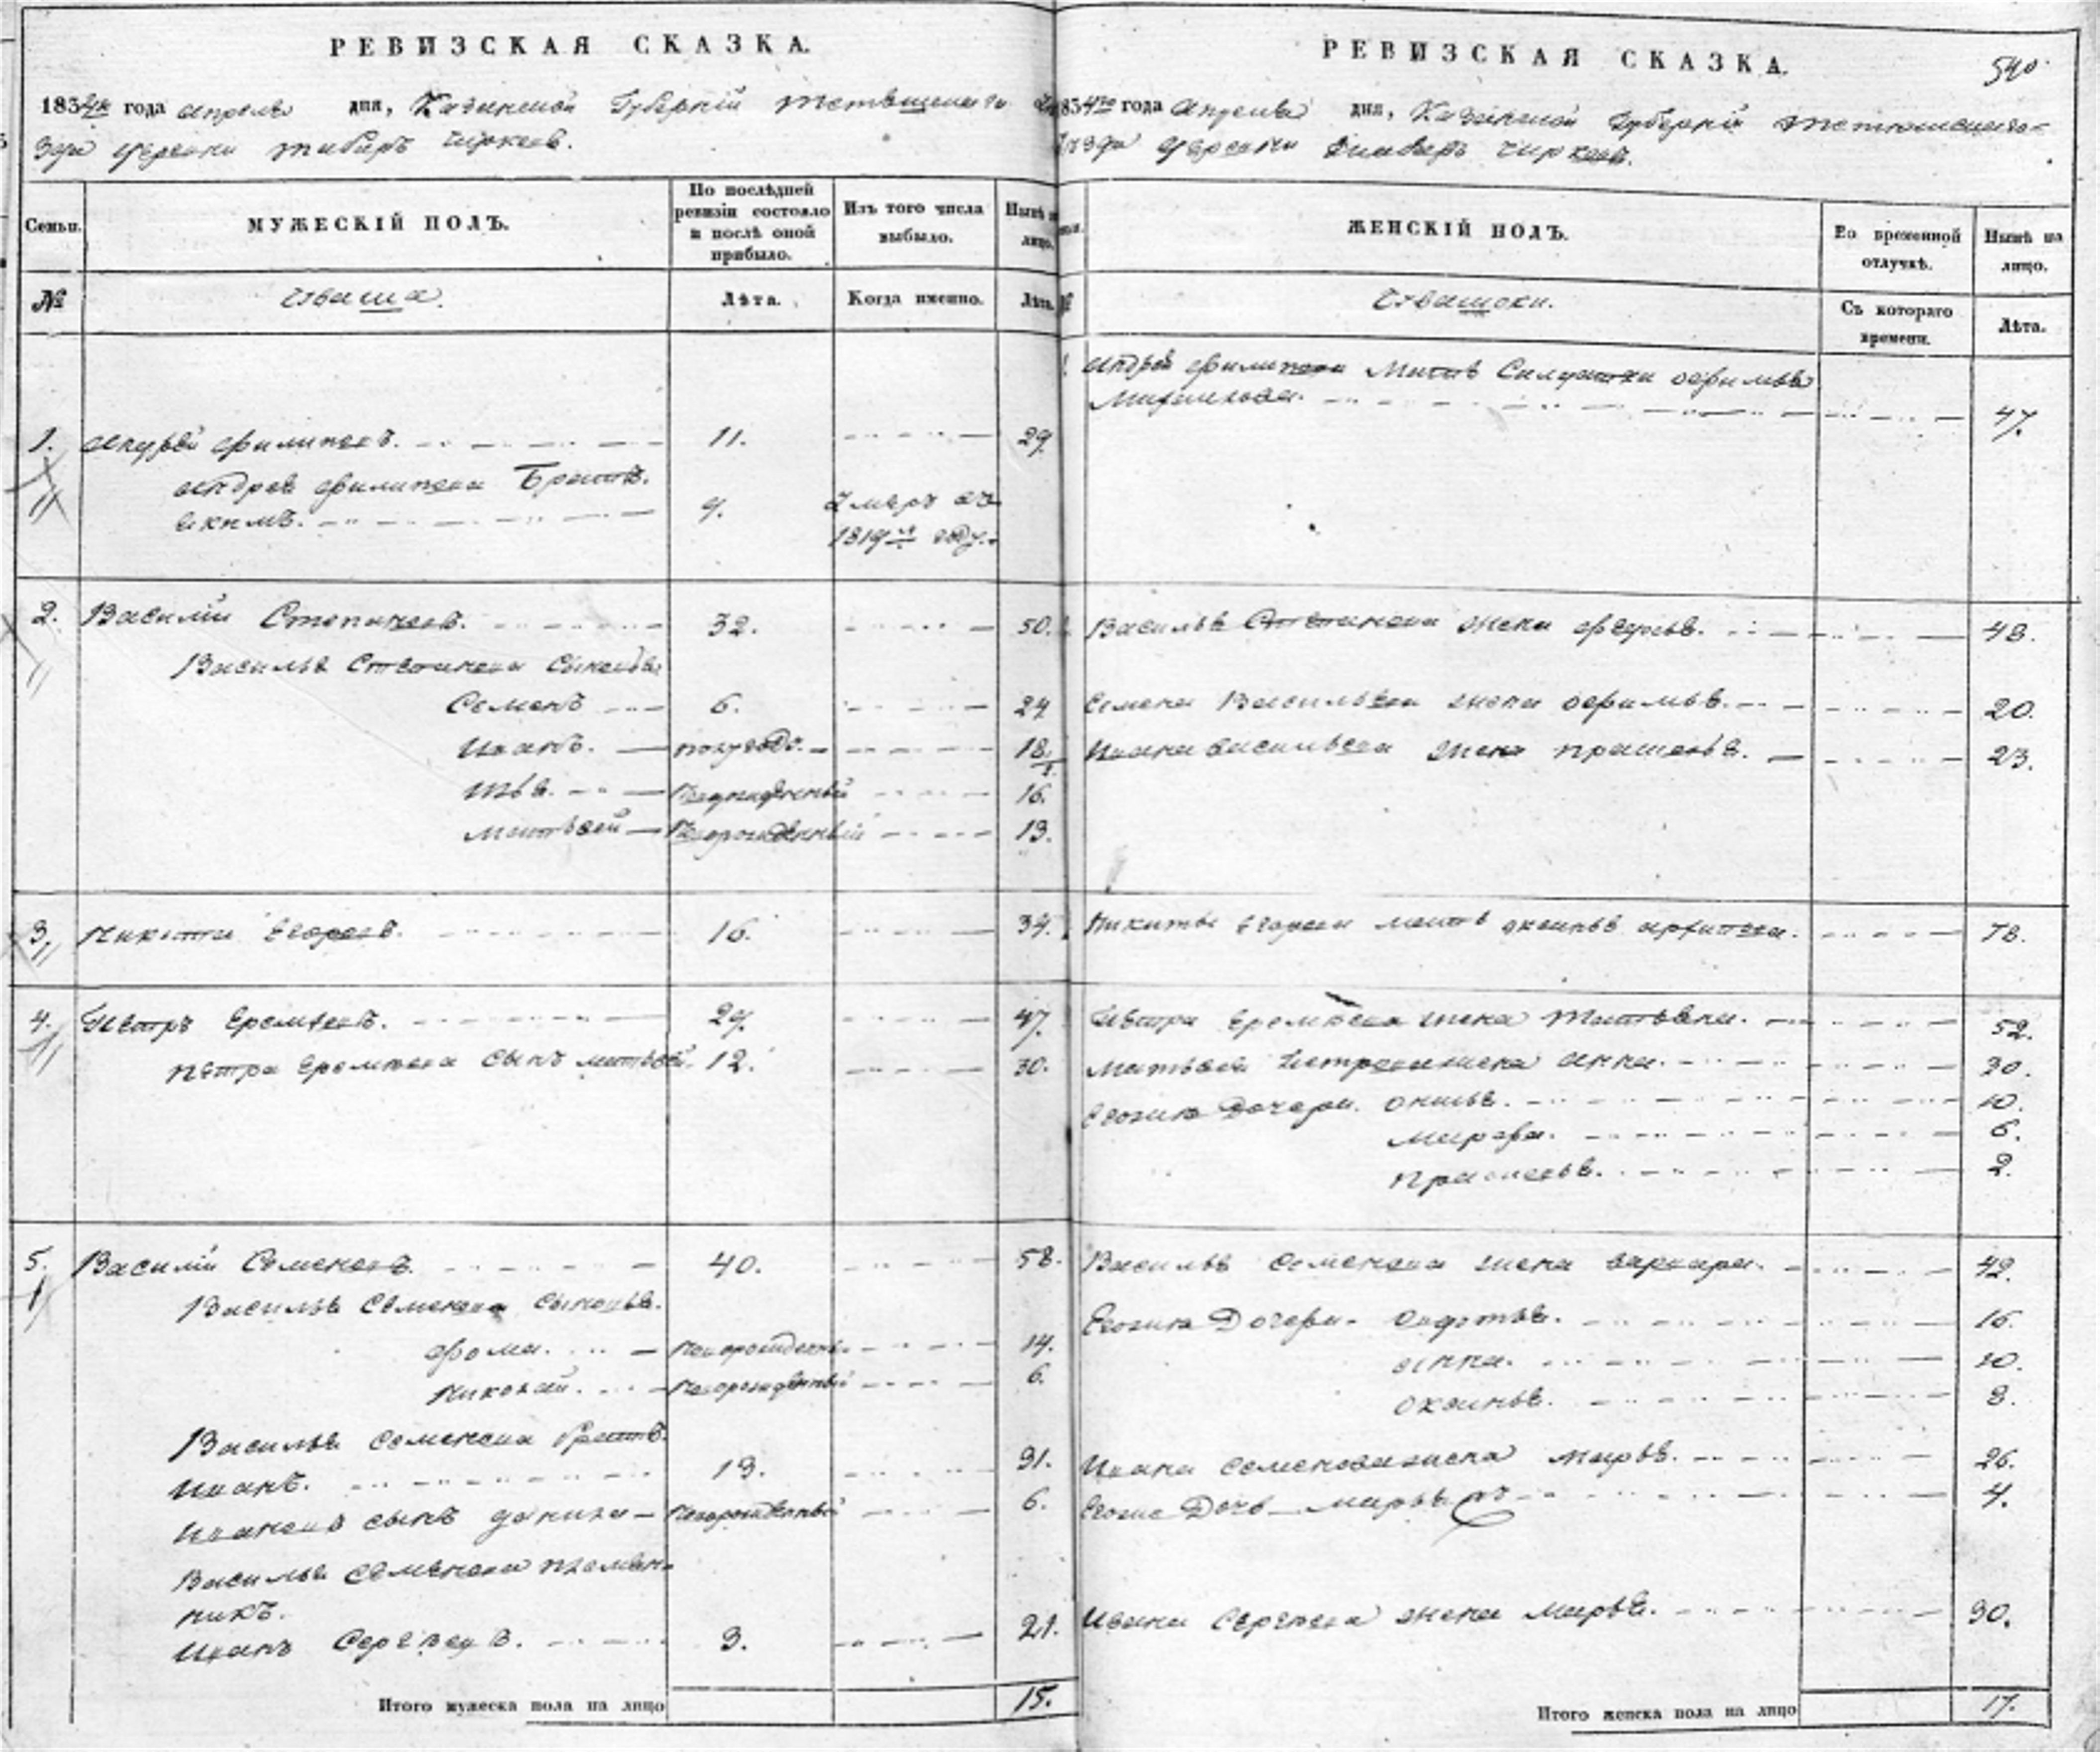 РЕВИЗСКАЯ СКАЗКА.
1834го года апреля дня, Казанской Губернiи
деревни Чиркеевъ.
Семьи. МУЖЕСКІЙ ПОЛЪ. По послѣдней ревизіи состояло и послѣ оной прибыло. Изъ того числа выбыло. Нынѣ на лицо.
№ Чуваша. Лѣта. Когда именно. Лѣта.
1. Андрей Филиповъ. 11. 29
Андрея Филипова Братъ.
9. Умеръ въ
1819м году.
2. Василій Степановъ. 32. 50.
Василья Степанова сыновья
Семенъ 6. 24
Иванъ. полугоду. 18
Новорожденный 16.
Матвей Новорожденный 13.
3. Никита Егоровъ. 16. 34.
4. Петръ Еремѣевъ. 29. 47.
Петра Еремѣева сынъ Матвѣй. 12. 30.
5. Василій Семеновъ. 40. 58.
Василья Семенова сыновья.
Фома. Новорожденный 14.
Николай. Новорожденный 6.
Василья Семенова братъ.
Иванъ. 13. 31.
Иванова сынъ Данила Новорожденный 6.
Василья Семенова племян-
никъ.
Иванъ Сергѣевъ. 3. 21.
Итого мужеска пола на лицо 15.
РЕВИЗСКАЯ СКАЗКА.
540
1834го года Апреля дня, Казанской Губернiи
Уѣзда деревни Чиркеевъ.
ЖЕНСКІЙ ПОЛЪ. Во временной отлучкѣ. Нынѣ на лицо.
№ Чувашски. Съ котораго времени. Лѣта.
1. Андрея Филипова Мать Солдатка Офимья
Михайлова. 47.
Василья Степанова жена Федосья. 48.
Семена Васильева жена Офимья. 20.
Ивана Васильева жена Прасковья. 23.
Никиты Егорова мать Архипова. 78.
Петра Еремѣева жена 52.
Матвея Петрова жена Анна. 30.
Егоже Дочери. 10.
Марфа. 6.
Прасковья. 2.
Василья Семенова жена Варвара. 42.
Егоже Дочери. 16.
Анна. 10.
Оксинья. 8.
Ивана Семенова жена Марья. 26.
Егоже Дочь Марья 4.
Ивана Сергѣева жена Марья. 30.
Итого женска пола на лицо 17.